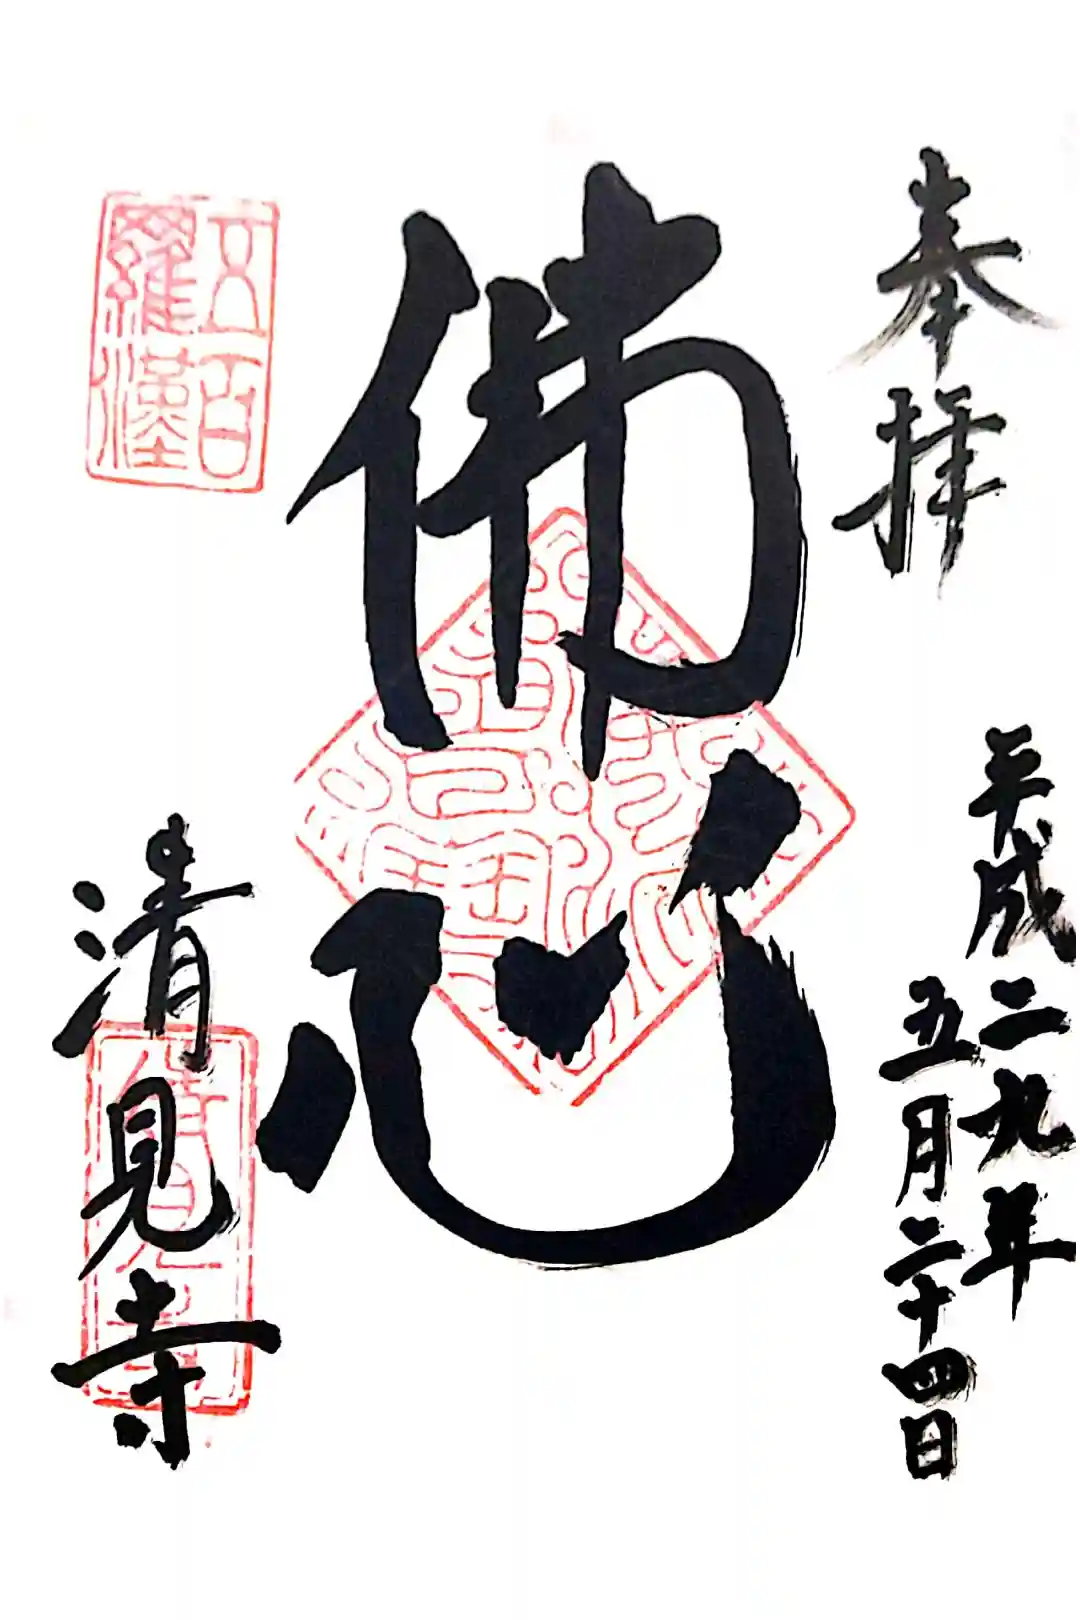 奉拝
平成二九年
五月二十四日
佛心
五百
羅漢
清見寺
清見寺